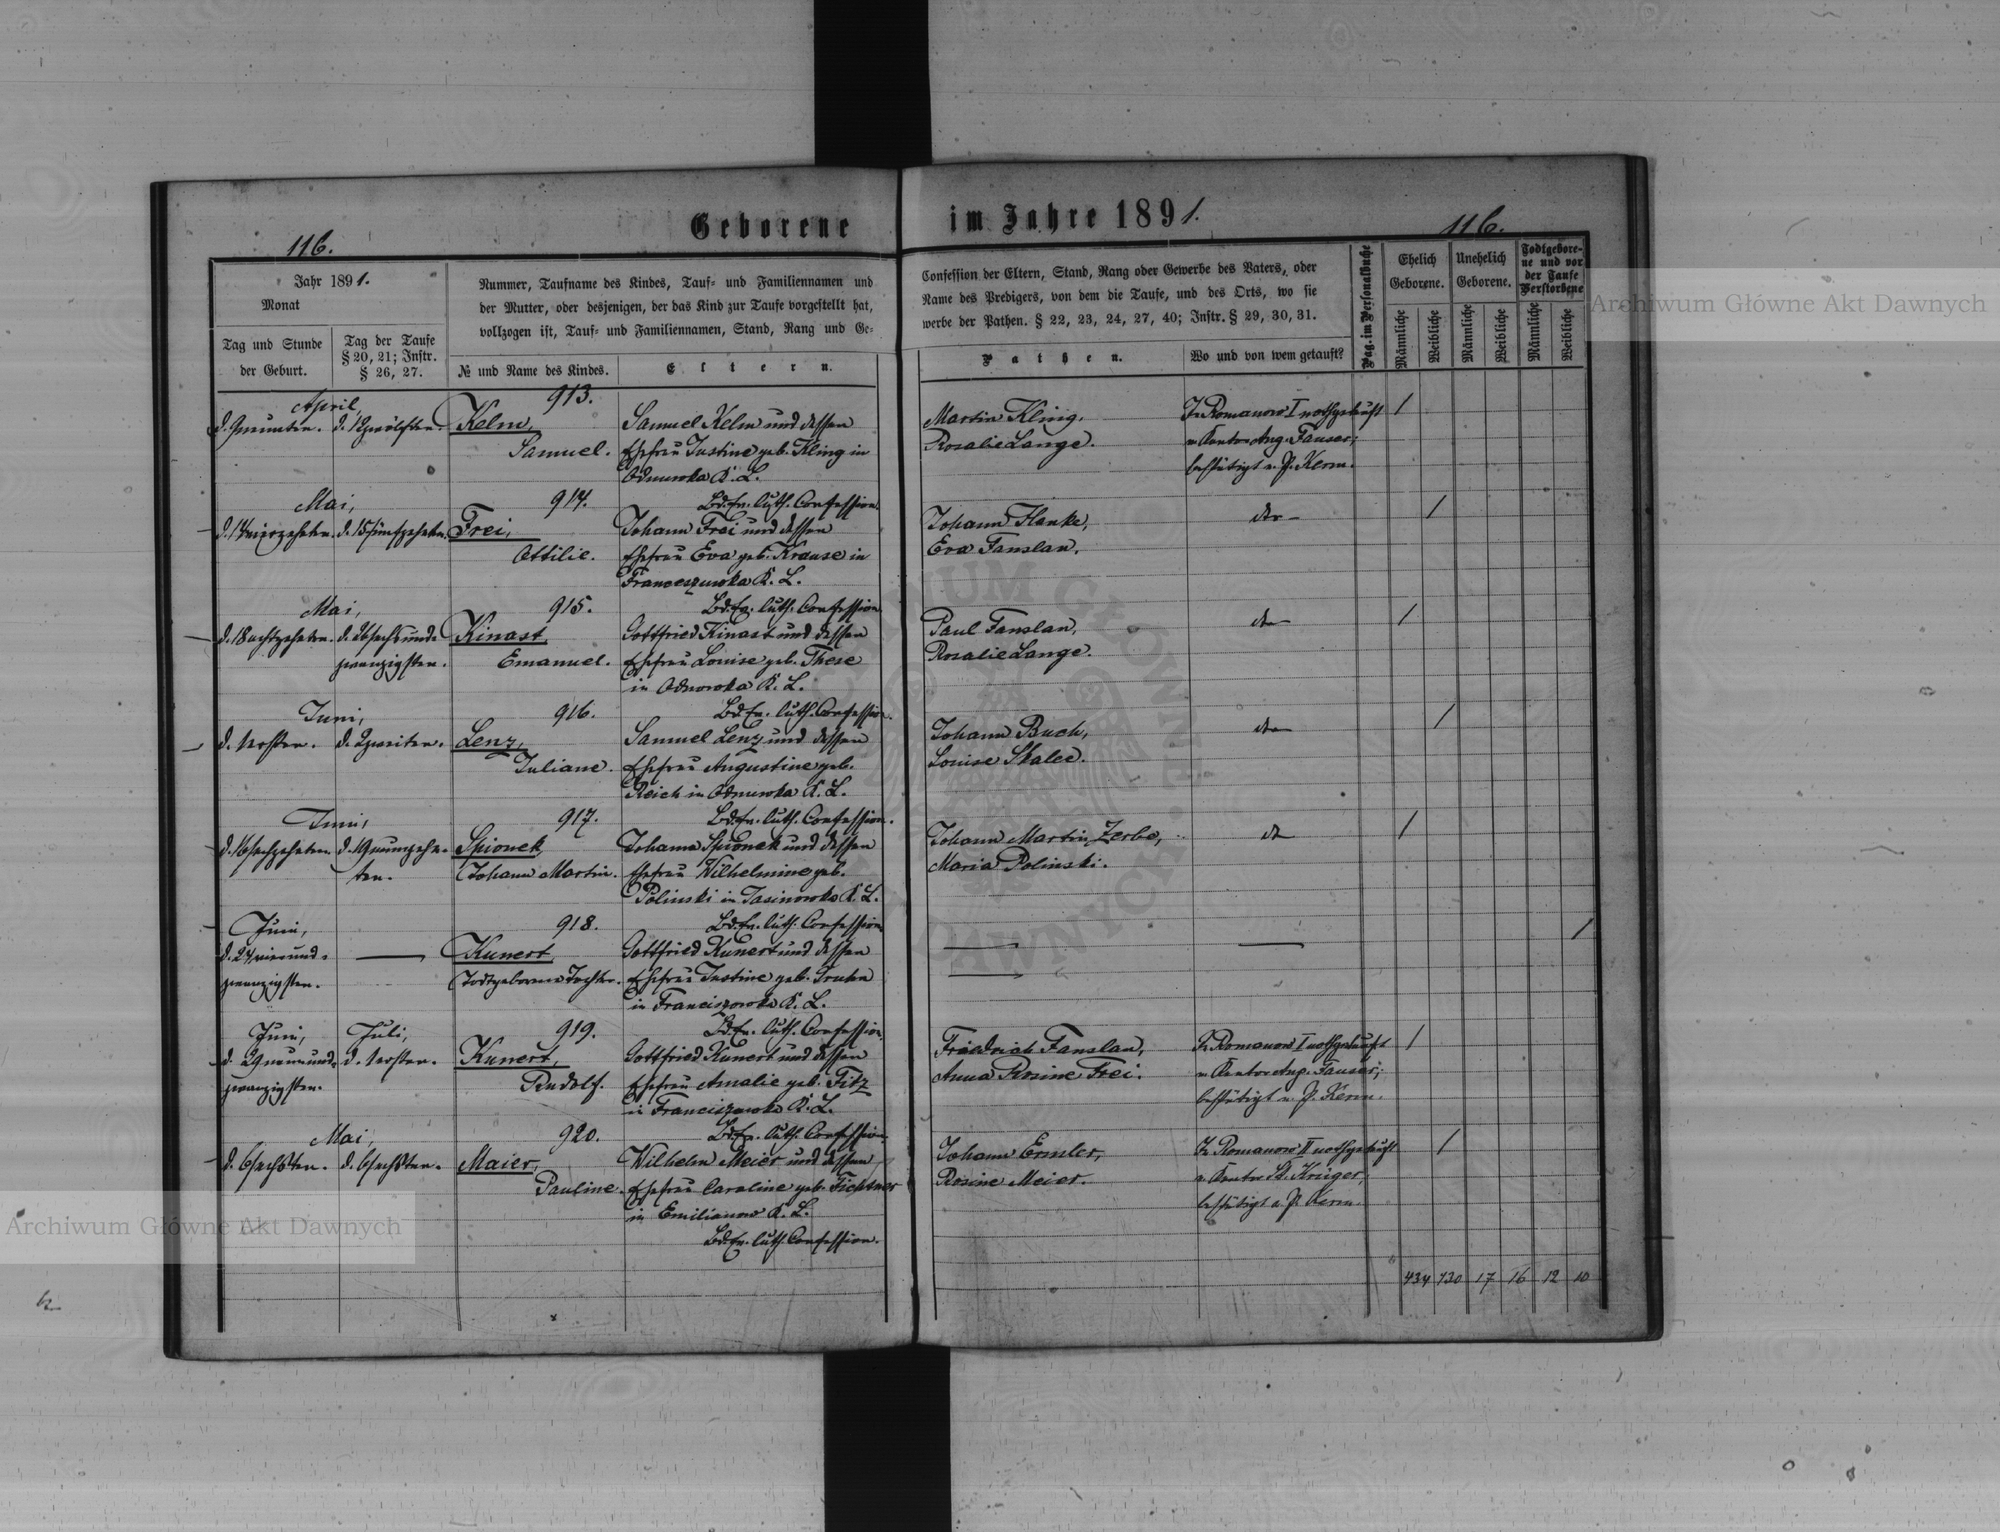 Geborene im Jahre 1891.
116. 116.
Jahr 1891.
Monat
Tag und Stunde der Geburt.
Tag der Taufe § 20, 21; Instr. § 26, 27.
Nummer, Taufname des Kindes, Tauf- und Familiennamen und
der Mutter, oder desjenigen, der das Kind zur Taufe vorgestellt hat,
vollzogen ist, Tauf- und Familiennamen, Stand, Rang und Ge-
№ und Name des Kindes.
Eltern.
Confession der Eltern, Stand, Rang oder Gewerbe des Vaters, oder
Name des Predigers, von dem die Taufe, und des Orts, wo sie
werbe der Pathen. § 22, 23, 24, 27, 40; Instr. § 29, 30, 31.
Pathen.
Wo und von wem getauft?
Pag. im Personalbuche
Ehelich Geborene.
Unehelich Geborene.
Todtgeborene und vor der Taufe Verstorbene
Männliche
Weibliche
Männliche
Weibliche
Männliche
Weibliche
April, 913.
d. 9 neunten. d. 12 zwölften. Kelm, Samuel Kelm und dessen Martin Kling. In Romanow I nothgetauft /
Samuel. Ehefrau Justine geb. Kling in Rosalie Lange. v. Kantor Aug. Fauser;
Odnuwka K. L. bestätigt v. P. Kerm.
Mai, 914. Bd. Ev. luth. Confession.
d. 14 vierzehnten. d. 15 fünfzehnten. Frei, Johann Frei und dessen Johann Hanke, dto /
Ottilie. Ehefrau Eva geb. Krause in Eva Fanslau.
Franceszuwka K. L.
Mai, 915. Bd. Ev. luth. Confession.
d. 18 achtzehnten. d. 26 sechsund- Kinast Gottfried Kinast und dessen Paul Fanslau, dto /
zwanzigsten. Emanuel. Ehefrau Louise geb. These Rosalie Lange.
in Odnowka K. L.
Juni, 916. Bd. Ev. luth. Confession.
d. 1 ersten. d. 2 zweiten. Lenz, Samuel Lenz und dessen Johann Buch, dto /
Juliane. Ehefrau Augustine geb. Louise Skalee.
Reich in Odnuwka K. L.
Juni, 917. Bd. Ev. luth. Confession.
d. 16 sechzehnten d. 19 neunzehn- Spionek Johann Spionek und dessen Johann Martin Zerbe, dto /
ten. Johann Martin. Ehefrau Wilhelmine geb. Maria Polinski.
Polinski in Jasinowka K. L.
Juni, 918. Bd. Ev. luth. Confession /
d. 24 vierund- Kunert Gottfried Kunert und dessen
zwanzigsten. Todtgeborene Tochter. Ehefrau Justine geb. Truhn
in Franciszowka K. L.
Juni, Juli, 919. Bd. Ev. luth. Confession
d. 29 neunund- d. 1 ersten. Kunert, Gottfried Kunert und dessen Friedrich Fanslau, In Romanow I nothgetauft /
zwanzigsten. Rudolf. Ehefrau Amalie geb. Fitz Anna Rosine Frei. v. Kantor Aug. Fauser;
in Franciszowka K. L. bestätigt v. P. Kerm.
Mai, 920. Bd. Ev. luth. Confession
d. 6 sechsten. d. 6 sechsten. Maier, Wilhelm Meier und dessen Johann Ermler, In Romanow II nothgetauft /
Pauline. Ehefrau Caroline geb. Fichtner Rosine Meier. v. Kantor Krüger,
in Emilianow K. L. bestätigt v. P. Kerm.
Bd. Ev. luth. Confession.
434 430 17 16 12 10
Archiwum Główne Akt Dawnych
Archiwum Główne Akt Dawnych